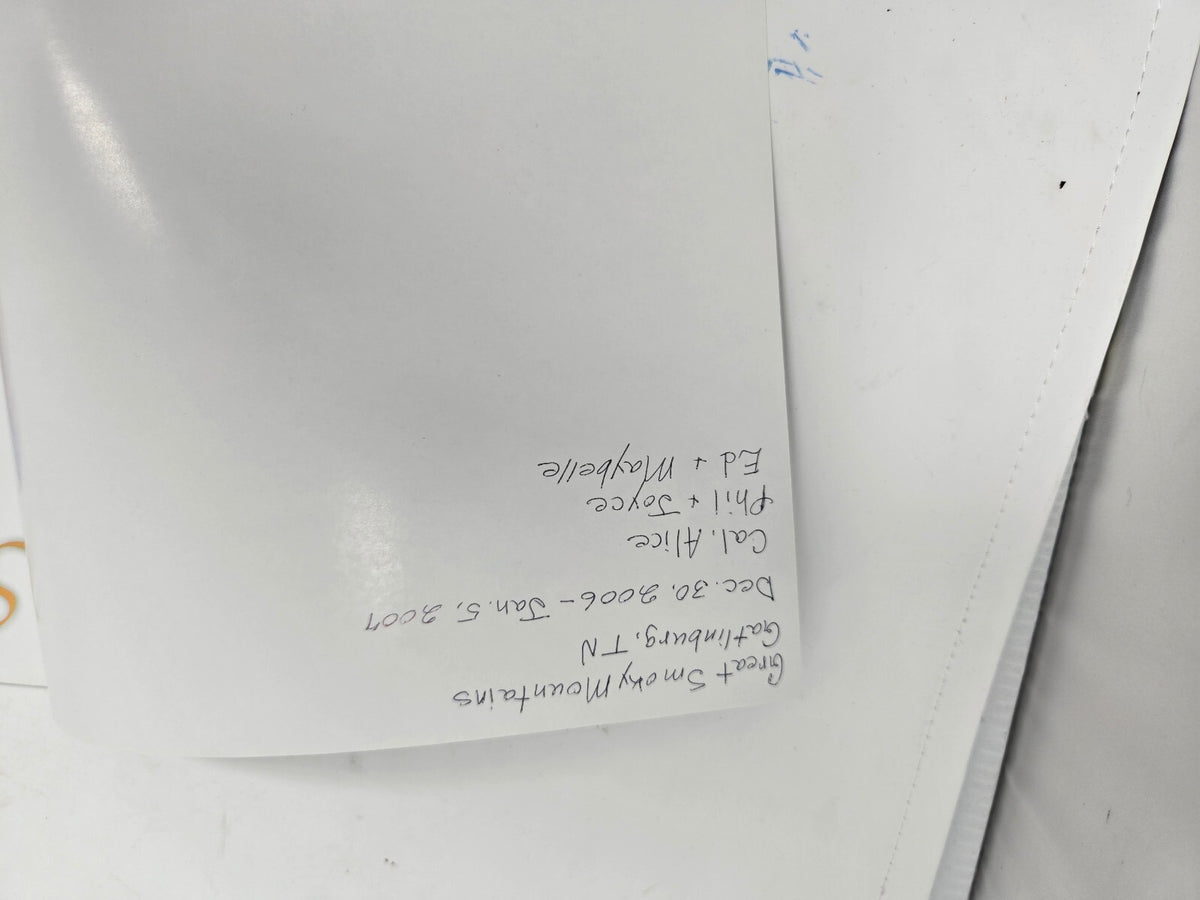 Great Smoky Mountains
Gatlinburg, TN
Dec. 30, 2006 - Jan. 5, 2007
Cal. Alice
Phil + Joyce
Ed + Maybelle